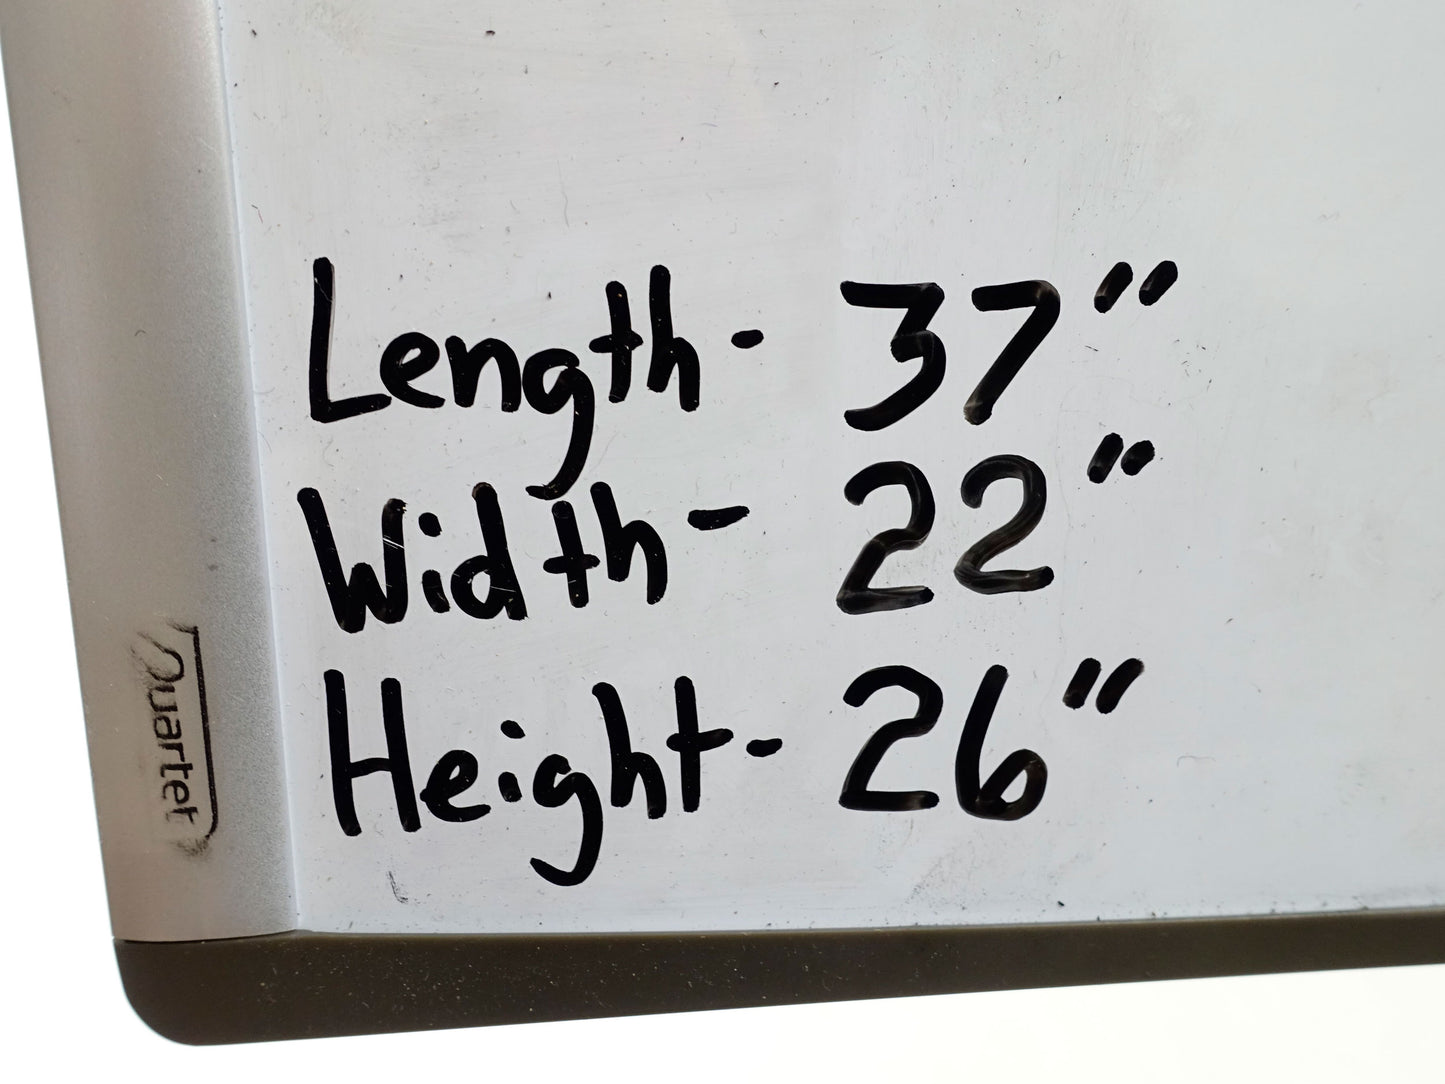 Length- 37"
Width- 22"
Height- 26"
Quartet